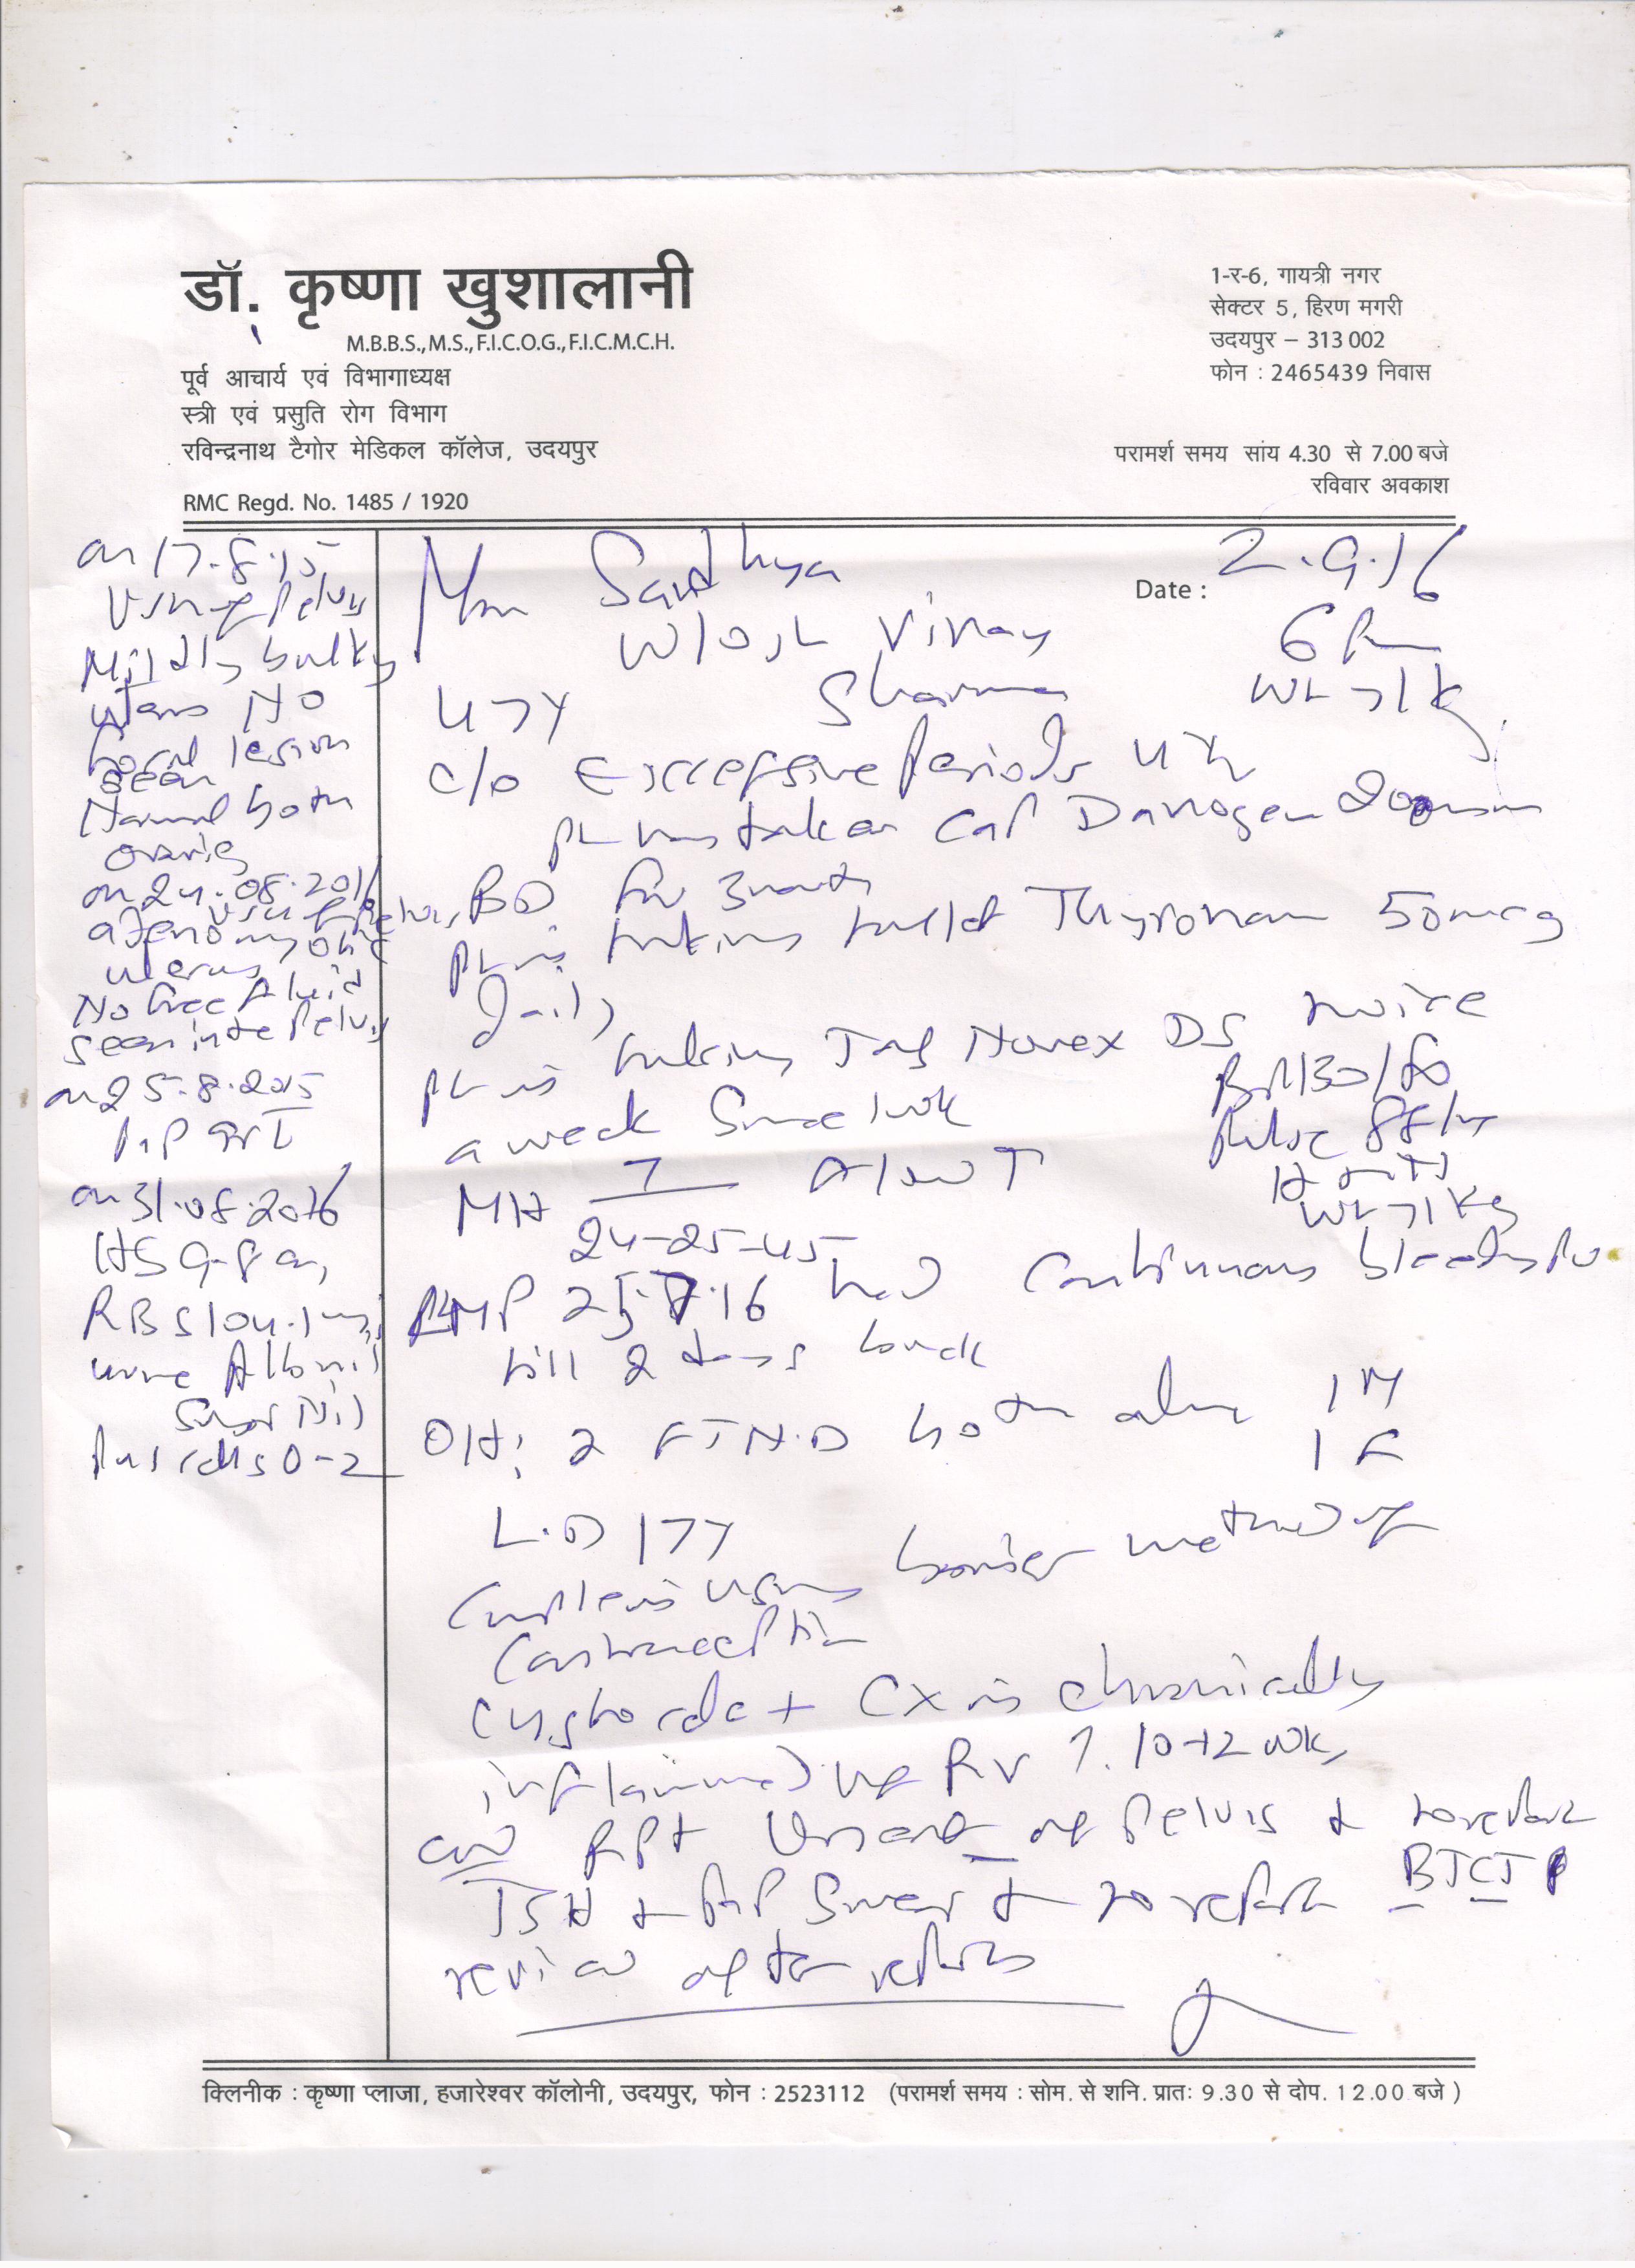 डॉ. कृष्णा खुशालानी
M.B.B.S.,M.S.,F.I.C.O.G.,F.I.C.M.C.H.
पूर्व आचार्य एवं विभागाध्यक्ष
स्त्री एवं प्रसुति रोग विभाग
रविन्द्रनाथ टैगोर मेडिकल कॉलेज, उदयपुर
RMC Regd. No. 1485 / 1920
1-र-6, गायत्री नगर
सेक्टर 5, हिरण मगरी
उदयपुर – 313 002
फोन : 2465439 निवास
परामर्श समय सांय 4.30 से 7.00 बजे
रविवार अवकाश
on 17.8.15
USG of Pelvis
Mildly bulky
uterus No
focal lesion
seen
Normal both
ovaries
on 24.08.2016
USG of Pelvis,
adenomyotic
uterus
No free fluid
seen in the Pelvis
on 25.8.2015
on 31.08.2016
RBS 104.1
urine Alb nil
Sugar Nil
Pus cells 0-2
Sandhya
Date : 2.9.16
W/o Sh Vinay
Sharma
6 Pm
47Y
Wt 71 kg
c/o Excessive Periods
Pt has taken Cap Danogen
BD for 3 month
Pt is taking tablet Thyronorm 50mcg
daily
Pt is taking Tab Novex DS twice
a week Since 1 wk
BP 130/80
Pulse 88/m
Wt 71 kg
MH
24-25-45
LMP 25.7.16 had Continuous bleeding PV
till 2 days back
OH: 2 FTND both alive 1 M
1 F
L.D 17Y
Couple is using barrier method of
Contraception
Cystocele + CX is chronically
inflammed RV ?. 10-12 wks
Adv Rpt of Pelvis & to report
TSH & PAP Smear & to report BTCT
review after reports
क्लिनीक : कृष्णा प्लाजा, हजारेश्वर कॉलोनी, उदयपुर, फोन : 2523112 (परामर्श समय : सोम. से शनि. प्रातः 9.30 से दोप. 12.00 बजे )